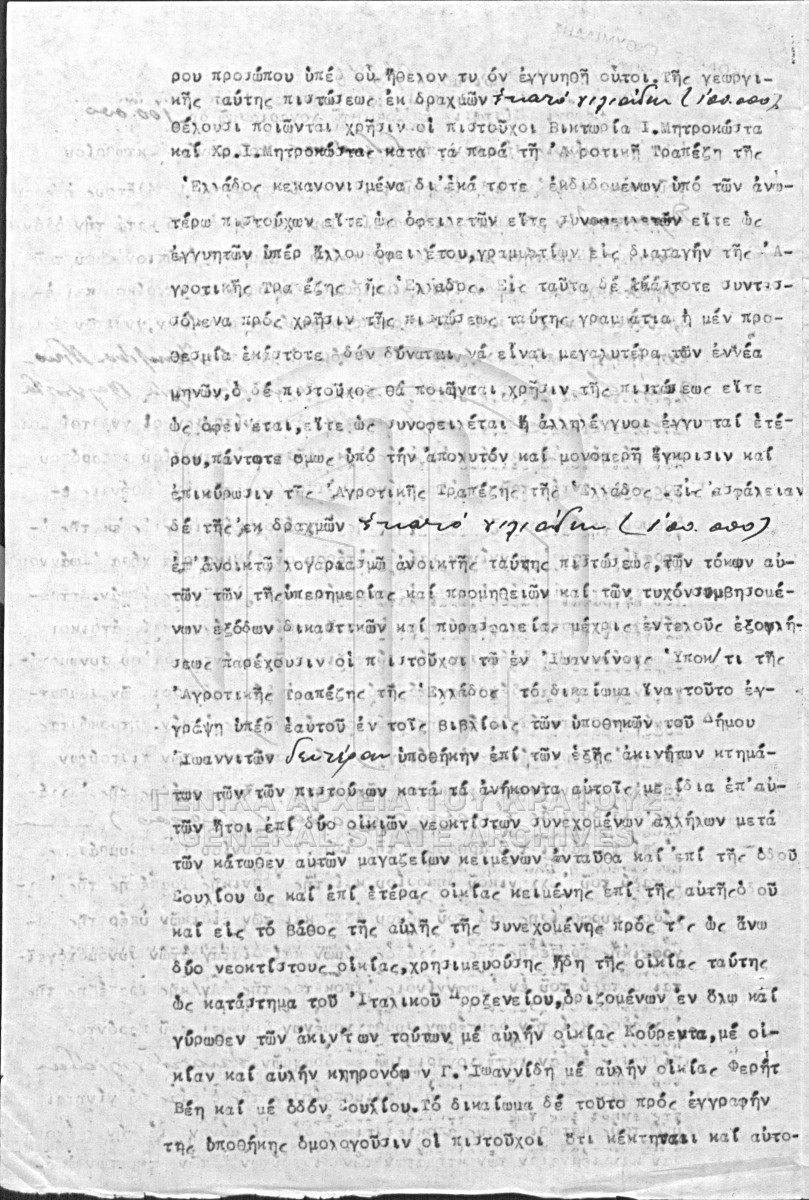 ρου προσώπου ὑπέρ οὗ ἤθελον τυ όν ἐγγυηθῆ οὗτοι.Τῆς γεωργι-
κῆς ταύτης πιστώσεως ἐκ δραχμῶν ἑκατό χιλιάδων (100.000)
θέλουσι ποιῶνται χρῆσιν οἱ πιστοῦχοι Βικτωρία Ι.Μητροκώστα
καί Χρ.Ι.Μητροκώστας κατα τά παρά τῆ Ἀγροτικῆ Τραπέζη τῆς
Ἑλλάδος κεκανονισμένα δι'ἑκά τοτε ἐκδιδομένων ὑπό τῶν ἀνω-
τέρω πιστούχων εἴτε ὡς ὀφειλετῶν εἴτε συνοφειλετῶν εἴτε ὡς
ἐγγυητῶν ὑπέρ ἄλλου ὀφειλέτου,γραμματίων εἰς διαταγήν τῆς Ἀ-
γροτικῆς Τραπέζης τῆς Ἑλλάδος. Εἰς ταῦτα δέ ἑκάστοτε συντασ-
σόμενα πρός χρῆσιν τῆς πιστώσεως ταύτης γραμμάτια ἡ μέν προ-
θεσμία ἑκάστοτε δέν δύναται νά εἶναι μεγαλυτέρα τῶν ἐννέα
μηνῶν,ὁ δέ πιστοῦχος θά ποιῆται χρῆσιν τῆς πιστώσεως εἴτε
ὡς ὀφει έται,εἴτε ὡς συνοφειλέται ἤ ἀλληλέγγυοι ἐγγυ ταί ἑτέ-
ρου,πάντοτε ὅμως ὑπό τήν ἀπόλυτόν καί μονομερῆ ἔγκρισιν καί
ἐπικύρωσιν τῆς Ἀγροτικῆς Τραπέζης τῆς Ἑλλάδος.Εἰς ἀσφάλειαν
δέ τῆς ἐκ δραχμῶν ἑκατό χιλιάδων (100.000)
ἐπ'ἀνοικτῶ λογαριασμῶ ἀνοικτῆς ταύτης πιστώσεως,τῶν τόκων αὐ-
τῶν τῶν τῆς ὑπερημερίας καί προμηθειῶν καί τῶν τυχόνσυμβησομέ-
νων ἐξόδων δικαστικῶν καί πυρασφαλείας μέχρις ἐντελοῦς ἐξοφλή-
σεως παρέχουσιν οἱ πιστοῦχοι τῶ ἐν Ἰωαννίνοις Ὑποκ/τι τῆς
Ἀγροτικῆς Τραπέζης τῆς Ἑλλάδος τό δικαίωμα ἵνα τοῦτο ἐγ-
γράψη ὑπέρ ἑαυτοῦ ἐν τοῖς βιβλίοις τῶν ὑποθηκῶν τοῦ Δήμου
Ἰωαννιτῶν δευτέραν ὑποθήκην ἐπί τῶν ἑξῆς ἀκινήτων κτημά-
των τῶν τῶν πιστούχων κατά τά ἀνήκοντα αὐτοῖς μερίδια ἐπ'αὐ-
ΓΕΝΙΚΑ ΑΡΧΕΙΑ ΤΟΥ ΚΡΑΤΟΥΣ
τῶν ἤτοι ἐπί δύο οἰκιῶν νεοκτίστων συνεχομένων ἀλλήλων μετά
GENERAL STATE ARCHIVES
τῶν κάτωθεν αὐτῶν μαγαζείων κειμένων ἐνταῦθα καί ἐπί τῆς ὁδοῦ
Σουλίου ὡς καί ἐπί ἑτέρας οἰκίας κειμένης ἐπί τῆς αὐτῆςὁδοῦ
καί εἰς τό βάθος τῆς αὐλῆς τῆς συνεχομένης πρός τάς ὡς ἄνω
δύο νεοκτίστους οἰκίας,χρησιμευούσης ἤδη τῆς οἰκίας ταύτης
ὡς κατάστημα τοῦ Ἰταλικοῦ Προξενείου,ὁριζομένων ἐν ὅλω καί
γύρωθεν τῶν ἀκινήτων τούτων μέ αὐλήν οἰκίας Κούρεντα,μέ οἰ-
κίαν καί αὐλήν κληρονόμων Γ.Ἰωαννίδη μέ αὐλήν οἰκίας Φερήτ
Βέη καί μέ ὁδόν Σουλίου.Τό δικαίωμα δέ τοῦτο πρός ἐγγραφήν
τῆς ὑποθήκης ὁμολογοῦσιν οἱ πιστοῦχοι ὅτι κέκτηνται καί αὐτο-